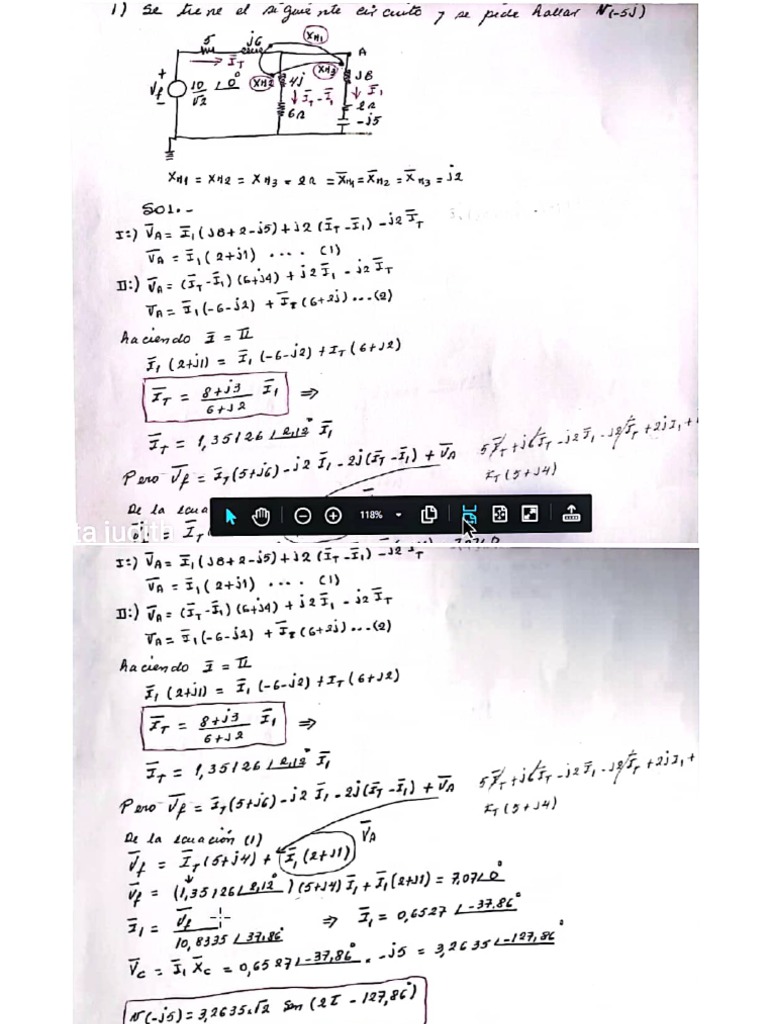 1) Se tiene el siguiente circuito y se pide hallar V(-5j)
5 j6 Xm1 A
I̅T Xm2 Xm3 j8
+ V̅f - 10/√2 ∠0° 4j I̅T - I̅1 I̅1
6Ω 2Ω
-j5
Xm1 = Xm2 = Xm3 = 2Ω = X̅m1 = X̅m2 = X̅m3 = j2
SOL.-
I:) V̅A = I̅1 (j8+2-j5) + j2 (I̅T - I̅1) - j2 I̅T
V̅A = I̅1 (2+j1) .... (1)
II:) V̅A = (I̅T - I̅1)(6+j4) + j2 I̅1 - j2 I̅T
V̅A = I̅1 (-6-j2) + I̅T (6+2j) ...(2)
Haciendo I = II
I̅1 (2+j1) = I̅1 (-6-j2) + IT (6+j2)
I̅T = 8+j3/6+j2 I̅1 ⇒
I̅T = 1,35126 ∠2,12° I̅1
Pero V̅f = I̅T (5+j6) - j2 I̅1 - 2j(I̅T - I̅1) + V̅A 5I̅T + j6I̅T - j2I̅1 - j2I̅T + 2jI1 +
IT (5+j4)
De la ecua
118%
ta judith
I:) V̅A = I̅1 (j8+2-j5) + j2 (I̅T - I̅1) - j2 I̅T
V̅A = I̅1 (2+j1) .... (1)
II:) V̅A = (I̅T - I̅1)(6+j4) + j2 I̅1 - j2 I̅T
V̅A = I̅1 (-6-j2) + I̅T (6+2j) ...(2)
Haciendo I = II
I̅1 (2+j1) = I̅1 (-6-j2) + IT (6+j2)
I̅T = 8+j3/6+j2 I̅1 ⇒
I̅T = 1,35126 ∠2,12° I̅1
Pero V̅f = I̅T (5+j6) - j2 I̅1 - 2j(I̅T - I̅1) + V̅A 5I̅T + j6I̅T - j2I̅1 - j2I̅T + 2jI1 +
IT (5+j4)
De la ecuación (1) V̅A
V̅f = I̅T (5+j4) + I̅1 (2+j1)
V̅f = (1,35126 ∠2,12°)(5+j4) I̅1 + I̅1 (2+j1) = 7,07 ∠0°
I̅1 = V̅f/10,8335 ∠37,86° ⇒ I̅1 = 0,6527 ∠-37,86°
V̅C = I̅1 X̅C = 0,6527 ∠-37,86° . -j5 = 3,2635 ∠-127,86°
V(-j5) = 3,2635√2 Sen (2t - 127,86°)